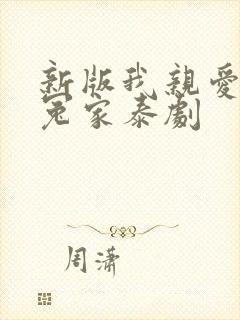 新版我親愛
冤家泰劇
周瀟